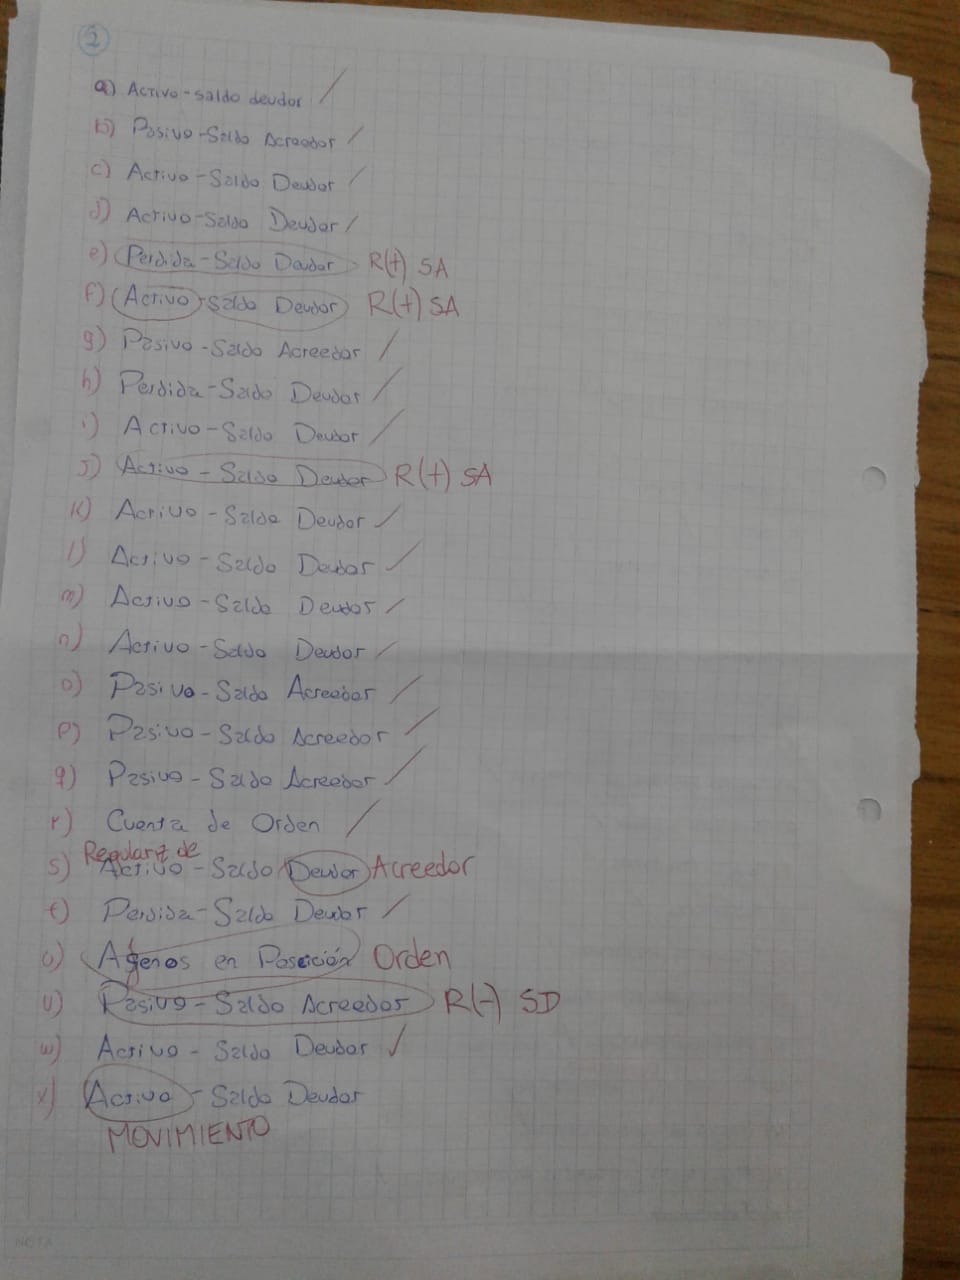 2
a) Activo - saldo deudor /
b) Pasivo - Saldo Acreedor /
c) Activo - Saldo Deudor /
d) Activo - Saldo Deudor /
e) Perdida - Saldo Deudor R(+) SA
f) Activo - Saldo Deudor R(+) SA
g) Pasivo - Saldo Acreedor /
h) Perdida - Saldo Deudor /
i) Activo - Saldo Deudor /
j) Activo - Saldo Deudor R(+) SA
K) Activo - Saldo Deudor /
l) Activo - Saldo Deudor /
m) Activo - Saldo Deudor /
n) Activo - Saldo Deudor /
o) Pasivo - Saldo Acreedor /
p) Pasivo - Saldo Acreedor /
q) Pasivo - Saldo Acreedor /
r) Cuenta de Orden /
Regulariz de
s) Activo - Saldo Deudor Acreedor
t) Perdida - Saldo Deudor /
u) Agenos en Posición Orden
v) Pasivo - Saldo Acreedor R(-) SD
w) Activo - Saldo Deudor ✓
x) Activo - Saldo Deudor
MOVIMIENTO
NOTA